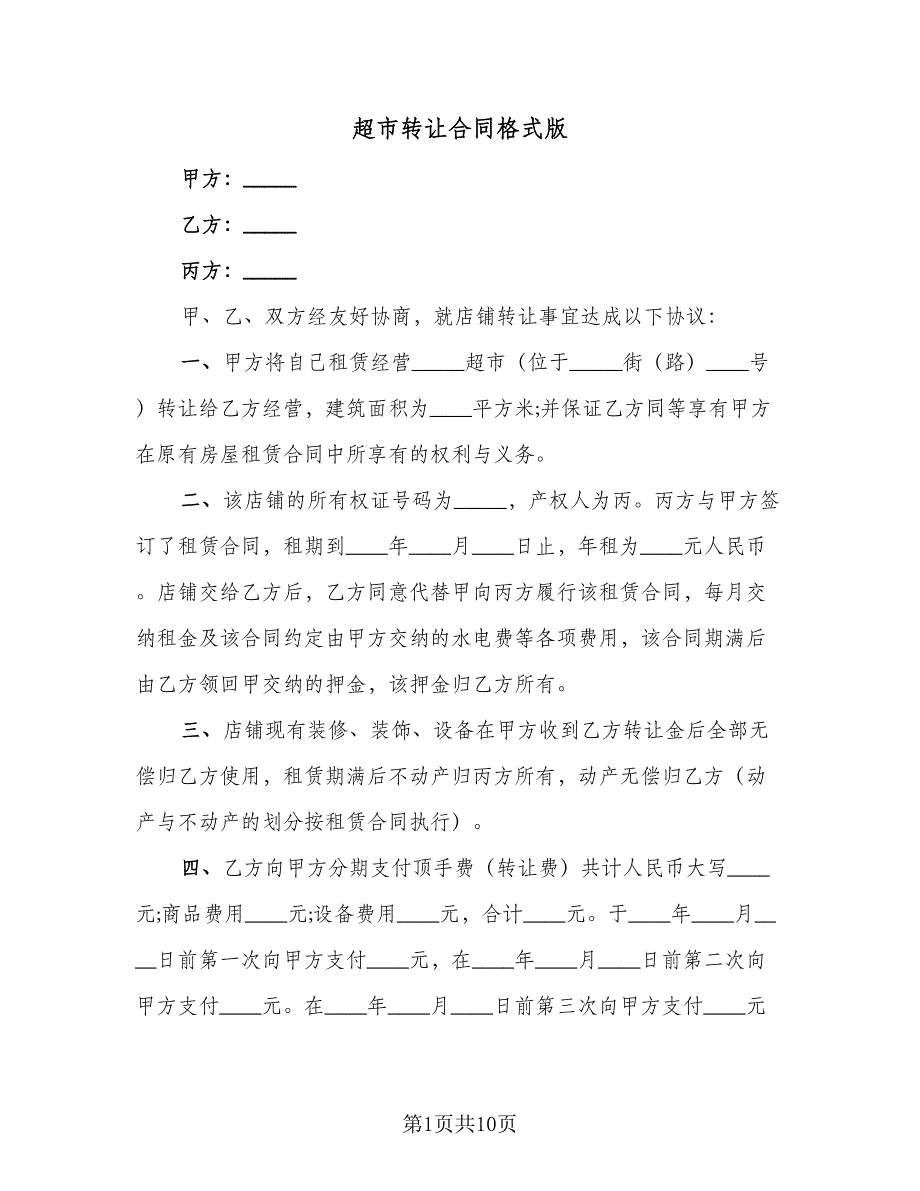 超市转让合同格式版
甲方：_____
乙方：_____
丙方：_____
甲、乙、双方经友好协商，就店铺转让事宜达成以下协议：
一、甲方将自己租赁经营_____超市（位于_____街（路）____号
）转让给乙方经营，建筑面积为____平方米;并保证乙方同等享有甲方
在原有房屋租赁合同中所享有的权利与义务。
二、该店铺的所有权证号码为_____，产权人为丙。丙方与甲方签
订了租赁合同，租期到____年____月____日止，年租为____元人民币
。店铺交给乙方后，乙方同意代替甲向丙方履行该租赁合同，每月交
纳租金及该合同约定由甲方交纳的水电费等各项费用，该合同期满后
由乙方领回甲交纳的押金，该押金归乙方所有。
三、店铺现有装修、装饰、设备在甲方收到乙方转让金后全部无
偿归乙方使用，租赁期满后不动产归丙方所有，动产无偿归乙方（动
产与不动产的划分按租赁合同执行）。
四、乙方向甲方分期支付顶手费（转让费）共计人民币大写____
元;商品费用____元;设备费用____元，合计____元。于____年____月__
__日前第一次向甲方支付____元，在____年____月____日前第二次向
甲方支付____元。在____年____月____日前第三次向甲方支付____元
第1页共10页